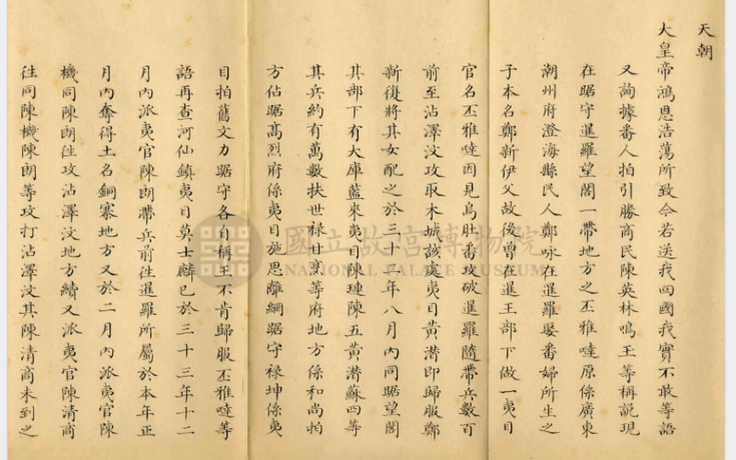 天朝
大皇帝鴻恩浩蕩所致今若送我回國我實不敢等語
又詢據番人拍引勝商民陳英林鳴王等稱說現
在踞守暹羅望閣一帶地方之丕雅噠原係廣東
潮州府澄海縣民人鄭咏在暹羅娶番婦所生之
子本名鄭新伊父故後曾在暹王部下做一夷目
官名丕雅噠因見烏肚番攻破暹羅隨帶兵數百
前至沾澤汶攻取木城該處夷目黃潛即歸服鄭
新復將其女配之於三十二年八月內同踞望閣
其部下有大庫藍來夷目陳璉陳五黃潛蘇四等
其兵約有萬數扶世祿甘烹等府地方係和尚拍
方佔踞高烈府係夷目施思離綱踞守祿坤係夷
目拍舊文力踞守各自稱王不肯歸服丕雅噠等
語再查河仙鎮夷目莫士麟已於三十三年十二
月內派夷官陳朗帶兵前往暹羅所屬於本年正
月內奪得土名銅寨地方又於二月內派夷官陳
機同陳朗往攻沾澤汶地方續又派夷官陳清商
往同陳機陳朗等攻打沾澤汶其陳清商未到之
國立故宮博物院
NATIONAL PALACE MUSEUM